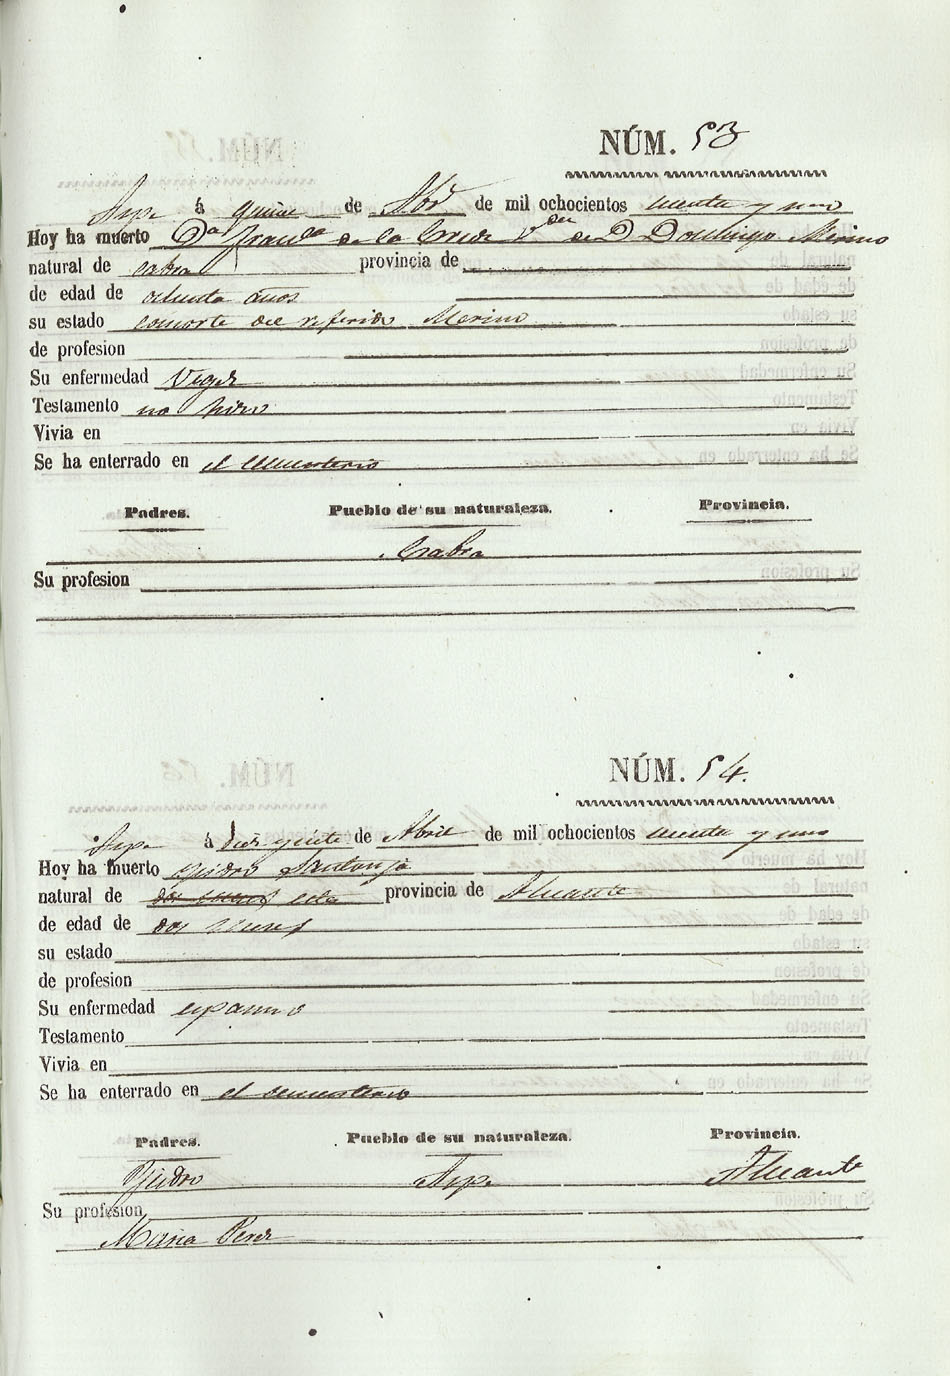 NÚM. 53
Aspe á quince de Abr de mil ochocientos cuenta y uno
Hoy ha muerto Dª Franca de la Cruz de D Domingo Merino
natural de cabra provincia de
de edad de ochenta años
su estado consorte del referido Merino
de profesion
Su enfermedad Vegez
Testamento no hizo
Vivia en
Se ha enterrado en el cementerio
Padres. Pueblo de su naturaleza. Provincia.
Cabra
Su profesion
NÚM. 54.
Aspe á diez y siete de Abril de mil ochocientos cuenta y uno
Hoy ha muerto Ysidro Santonja
natural de dos meses esta provincia de Alicante
de edad de dos meses
su estado
de profesion
Su enfermedad espasmo
Testamento
Vivia en
Se ha enterrado en el cementerio
Padres. Pueblo de su naturaleza. Provincia.
Ysidro Aspe Alicante
Su profesion
Maria Perez